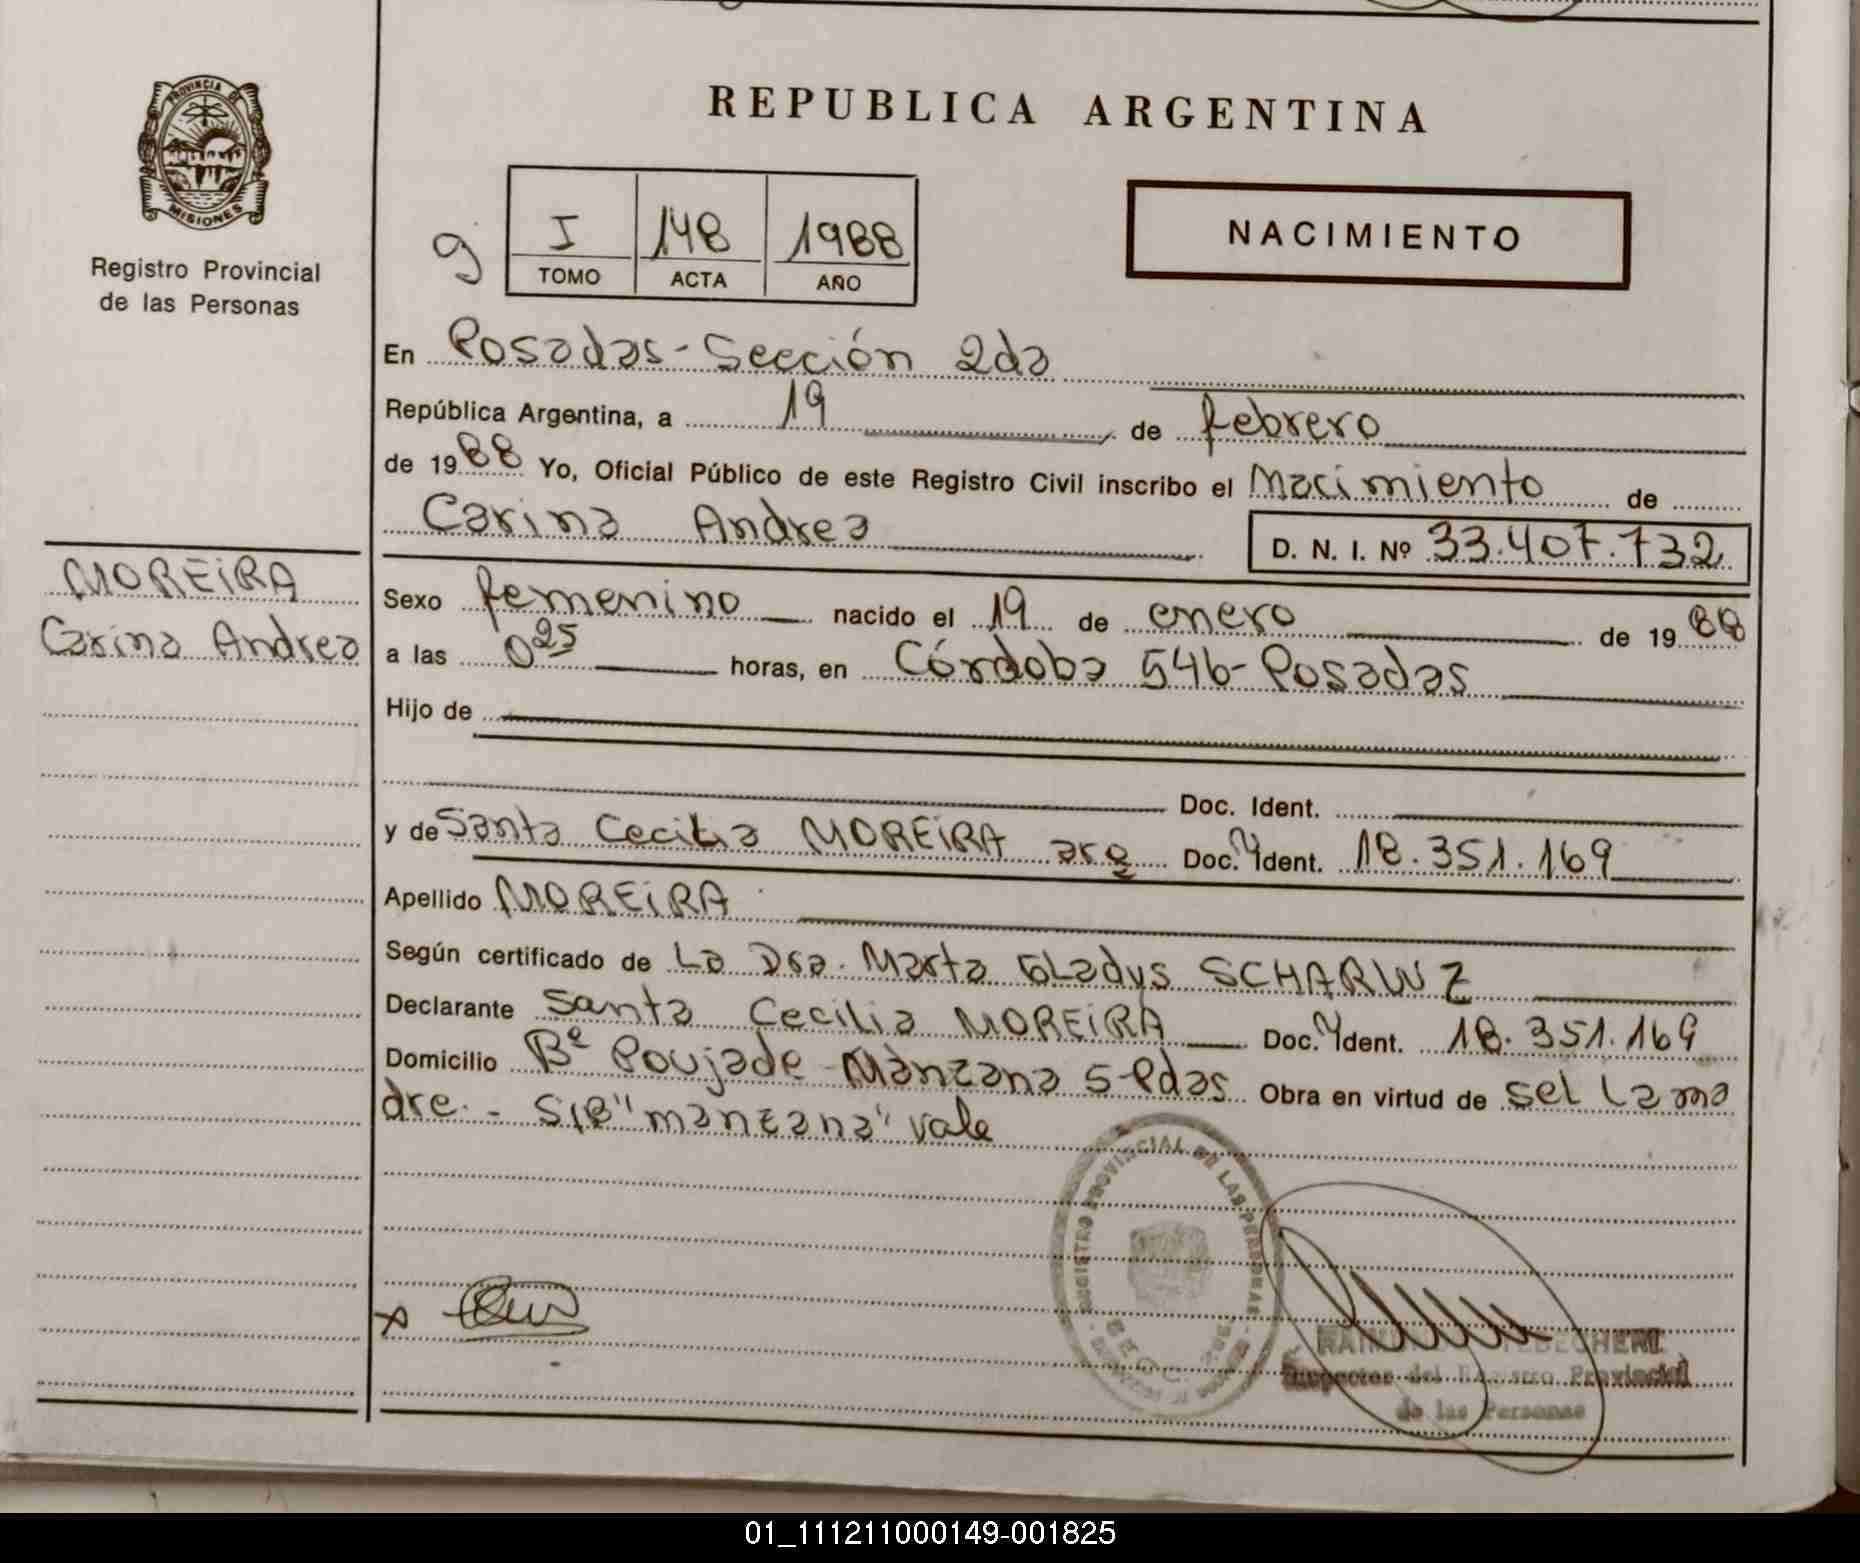 REPUBLICA ARGENTINA
PROVINCIA DE
MISIONES
Registro Provincial
de las Personas
g
I 148 1988
TOMO ACTA AÑO
NACIMIENTO
En Posadas-Sección 2da
República Argentina, a 19 de febrero
de 1988 Yo, Oficial Público de este Registro Civil inscribo el Nacimiento de
Carina Andrea
D. N. I. Nº 33.407.732
MOREIRA
Carina Andrea
Sexo femenino nacido el 19 de enero de 1988
a las 0 25 horas, en Córdoba 546-Posadas
Hijo de
Doc. Ident.
y de Santa Cecilia MOREIRA arg Doc. Ident. 18.351.169
Apellido MOREIRA
Según certificado de La Dra. Marta Gladys SCHARWZ
Declarante Santa Cecilia MOREIRA Doc. Ident. 18.351.169
Domicilio Bº Poujade-Manzana 5-Pdas Obra en virtud de sel La ma
dre.- S/B "manzana" vale
REGISTRO PROVINCIAL DE LAS PERSONAS
x
Inspector del Registro Provincial
de las Personas
01_111211000149-001825